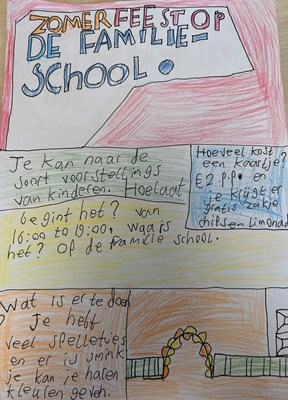 ZOMERFEEST OP
DE FAMILIE-
SCHOOL.
Je kan naar de
soort voorstellings
van kinderen. Hoelaat
begint het? van
16:00 to 19:00. waais
het? Op de familie school.
Hoeveel kost
een kaartje?
€2 p.p. en
je krijgt er
gratis zakje
chips en limonad
Wat is er te doen
Je heft
veel spelletjes
en er is smink
je kan je haren
kleuren geven.